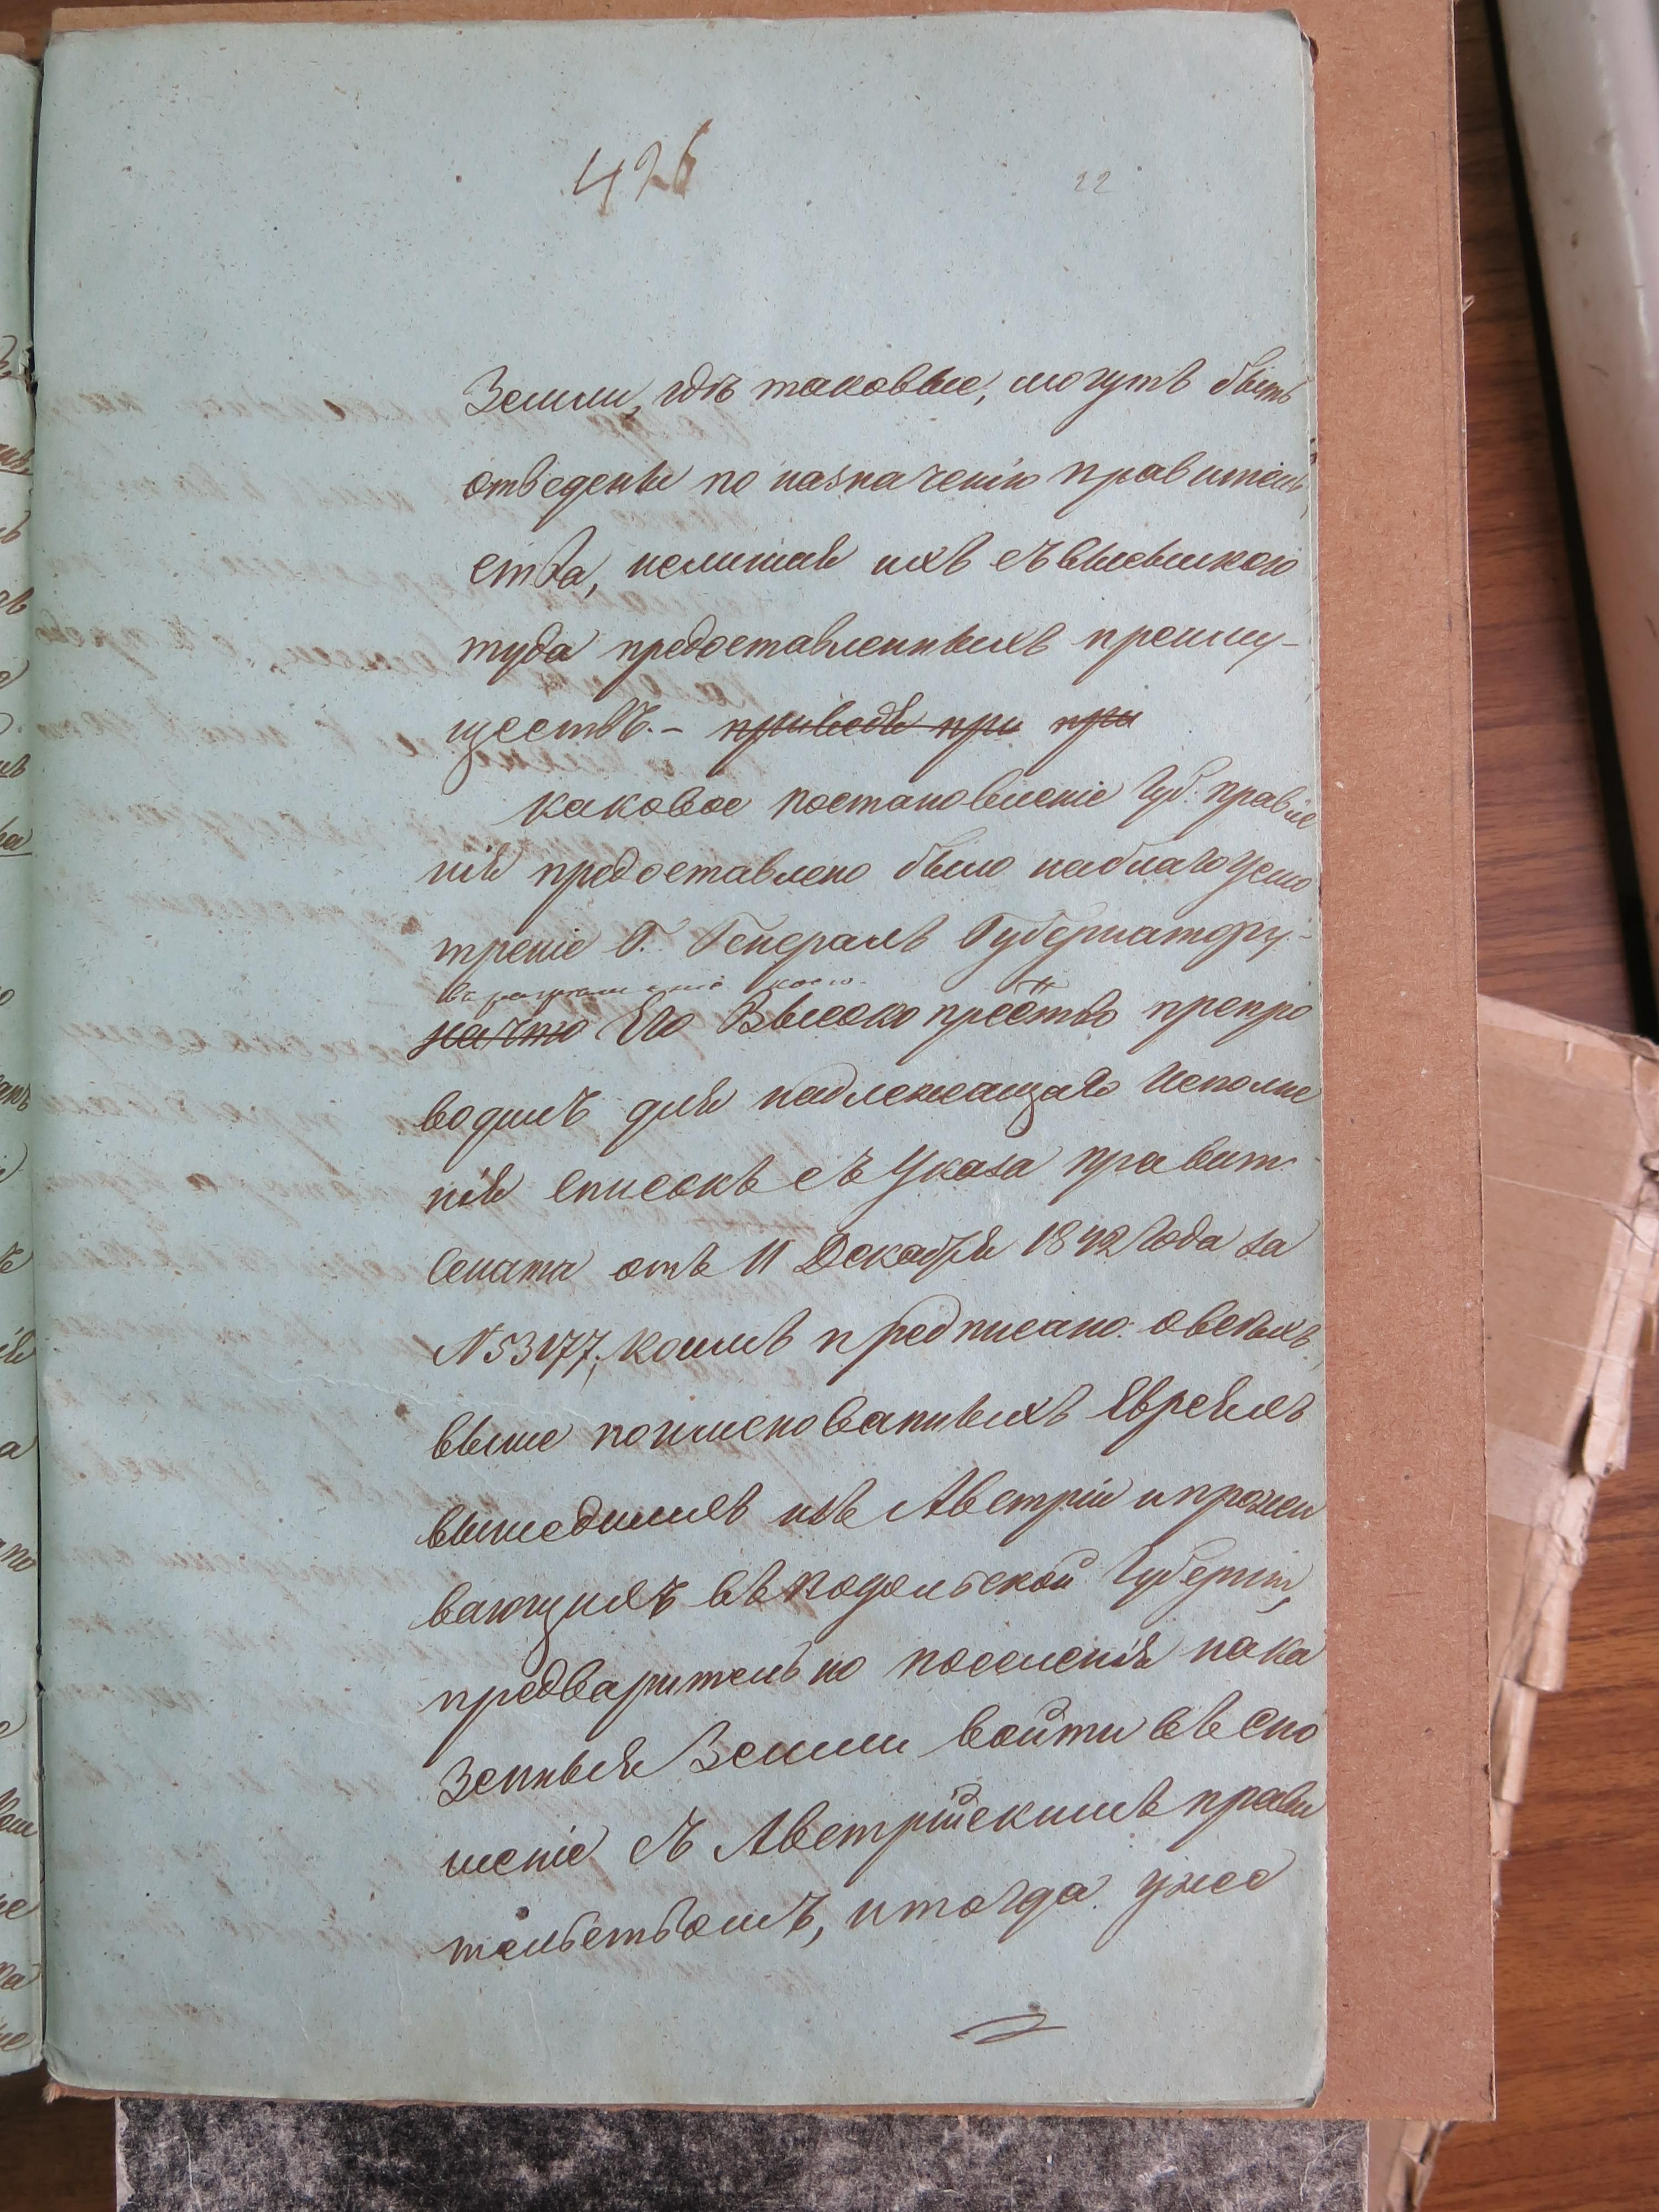 426
22
Земли, гдѣ таковые, могутъ быть
отведены по назначенію правитель
ства, нелишая ихъ съ высылкою
туда предоставленныхъ преиму-
ществъ. – приведя при при
каковое постановленіе Губ. правле
нія предоставлено было наблагоусмо
трѣніе Г. Генералъ Губернатору.-
въ разрѣшеніе коего
на что Его Высокопрество препро
водилъ для надлежащаго исполне
нія списокъ съ Указа правит.
Сената отъ 11 Декабря 1842 года за
N 53177, коимъ предписано: овсѣхъ
выше поименованныхъ Евреяхъ
вышедшихъ изъ Австріи ипрожи
вающихъ въ подольской Губерніи,
предварительно поселенія нака
зенныя Земли войти въ сно
шеніе съ Австрійскимъ прави
тельствомъ, итогда уже